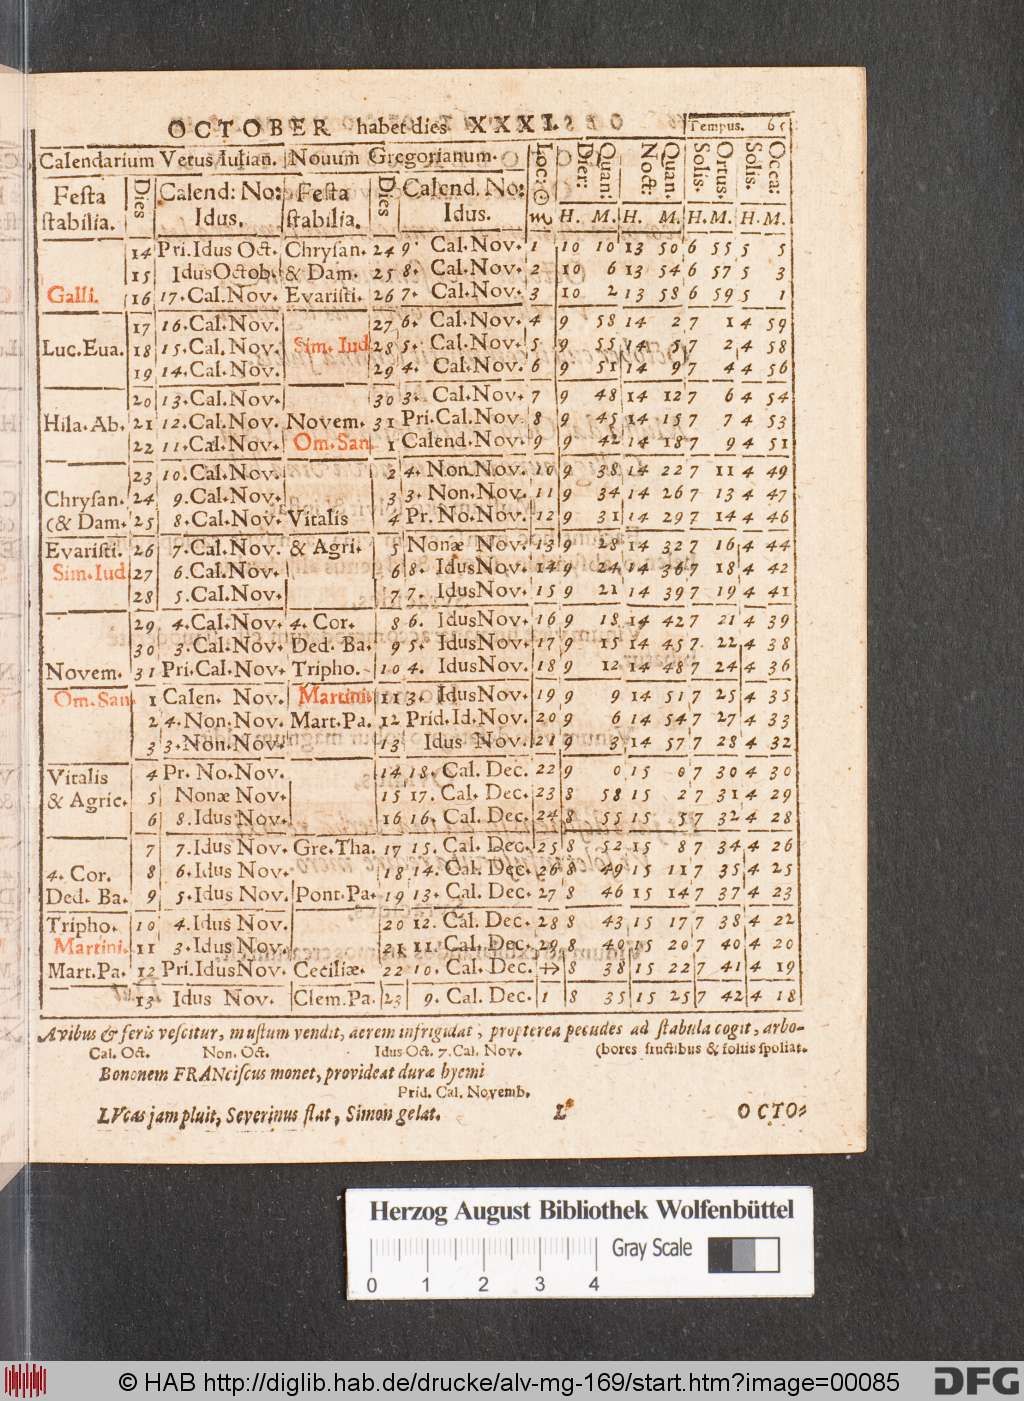 OCTOBER habet dies XXXI.
Tempus. 65
Calendarium Vetus Iulian. Nouum Gregorianum.
Loc: ☉ Quan: Dier: Quan. Noct: Ortus. Solis. Occa: Solis.
Festa stabilia. Dies Calend: No: Idus. Festa stabilia. Dies Calend. No: Idus. ♏ H. M. H. M. H. M. H. M.
14 Pri. Idus Oct. Chrysan. 24 9. Cal. Nov. 1 10 10 13 50 6 55 5 5
15 Idus Octob. & Dam. 25 8. Cal. Nov. 2 10 6 13 54 6 57 5 3
Galli. 16 17. Cal. Nov. Evaristi. 26 7. Cal. Nov. 3 10 2 13 58 6 59 5 1
17 16. Cal. Nov. 27 6. Cal. Nov. 4 9 58 14 2 7 1 4 59
Luc. Eua. 18 15. Cal. Nov. Sim. Iud 28 5. Cal. Nov. 5 9 55 14 5 7 2 4 58
19 14. Cal. Nov. 29 4. Cal. Nov. 6 9 51 14 9 7 4 4 56
20 13. Cal. Nov. 30 3. Cal. Nov. 7 9 48 14 12 7 6 4 54
Hila. Ab. 21 12. Cal. Nov. Novem. 31 Pri. Cal. Nov 8 9 45 14 15 7 7 4 53
22 11. Cal. Nov. Om. San. 1 Calend. Nov. 9 9 42 14 18 7 9 4 51
23 10. Cal. Nov. 2 4. Non. Nov. 10 9 38 14 22 7 11 4 49
Chrysan. 24 9. Cal. Nov. 3 3. Non. Nov. 11 9 34 14 26 7 13 4 47
(& Dam. 25 8. Cal. Nov. Vitalis 4 Pr. No. Nov. 12 9 31 14 29 7 14 4 46
Evaristi. 26 7. Cal. Nov. & Agri. 5 Nonæ Nov. 13 9 28 14 32 7 16 4 44
Sim. Iud 27 6. Cal. Nov. 6 8. Idus Nov. 14 9 24 14 36 7 18 4 42
28 5. Cal. Nov. 7 7. Idus Nov. 15 9 21 14 39 7 19 4 41
29 4. Cal. Nov. 4. Cor. 8 6. Idus Nov. 16 9 18 14 42 7 21 4 39
30 3. Cal. Nov. Ded. Ba. 9 5. Idus Nov. 17 9 15 14 45 7 22 4 38
Novem. 31 Pri. Cal. Nov. Tripho. 10 4. Idus Nov. 18 9 12 14 48 7 24 4 36
Om. San. 1 Calen. Nov. Martini. 11 3. Idus Nov. 19 9 9 14 51 7 25 4 35
2 4. Non. Nov. Mart. Pa. 12 Prid. Id. Nov. 20 9 6 14 54 7 27 4 33
3 3. Non. Nov. 13 Idus Nov. 21 9 3 14 57 7 28 4 32
Vitalis 4 Pr. No. Nov. 14 18. Cal. Dec. 22 9 0 15 0 7 30 4 30
& Agric. 5 Nonæ Nov. 15 17. Cal. Dec. 23 8 58 15 2 7 31 4 29
6 8. Idus Nov. 16 16. Cal. Dec. 24 8 55 15 5 7 32 4 28
7 7. Idus Nov. Gre. Tha. 17 15. Cal. Dec. 25 8 52 15 8 7 34 4 26
4. Cor. 8 6. Idus Nov. 18 14. Cal. Dec. 26 8 49 15 11 7 35 4 25
Ded. Ba. 9 5. Idus Nov. Pont. Pa. 19 13. Cal. Dec. 27 8 46 15 14 7 37 4 23
Tripho. 10 4. Idus Nov. 20 12. Cal. Dec. 28 8 43 15 17 7 38 4 22
Martini. 11 3. Idus Nov. 21 11. Cal. Dec. 29 8 40 15 20 7 40 4 20
Mart. Pa. 12 Pri. Idus Nov. Ceciliæ. 22 10. Cal. Dec. ♐ 8 38 15 22 7 41 4 19
13 Idus Nov. Clem. Pa. 23 9. Cal. Dec. 1 8 35 15 25 7 42 4 18
Avibus & feris vescitur, mustum vendit, aerem infrigidat, propterea pecudes ad stabula cogit, arbo-
Cal. Oct. Non. Oct. Idus Oct. 7. Cal. Nov. (bores fructibus & foliis spoliat.
Bononem FRANciscus monet, provideat duræ hyemi
Prid. Cal. Novemb.
LUcas jam pluit, Severinus flat, Simon gelat. L OCTO-
Herzog August Bibliothek Wolfenbüttel
Gray Scale
0 1 2 3 4
© HAB http://diglib.hab.de/drucke/alv-mg-169/start.htm?image=00085 DFG